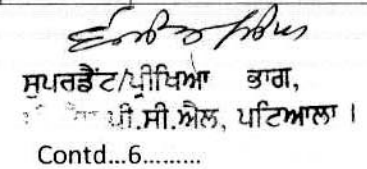 ਸੁਪਰਡੈਂਟ/ਪ੍ਰੀਖਿਆ ਭਾਗ,
ਪੀ.ਸੀ.ਐਲ, ਪਟਿਆਲਾ ।
Contd...6.........